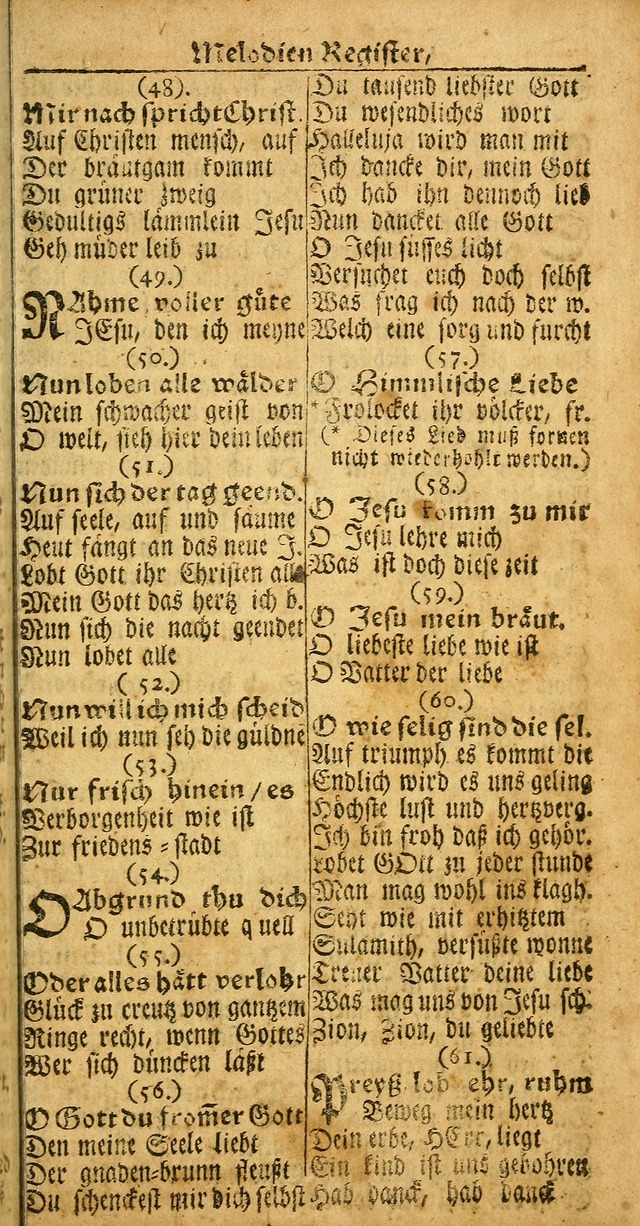 Melodien Register,
(48).
Mir nach spricht Christ.
Auf Christen mensch, auf
Der bräutgam kommt
Du grüner zweig
Gedultigs lämmlein Jesu
Geh müder leib zu
(49.)
NAhme voller güte
JEsu, den ich meyne
(50.)
Nun loben alle wälder
Mein schwacher geist von
O welt, sieh hier dein leben
(51.)
Nun sich der tag geend.
Auf seele, auf und säume
Heut fängt an das neue J.
Lobt Gott ihr Christen alle
Mein Gott das hertz ich b.
Nun sich die nacht geendet
Nun lobet alle
(52.)
Nun will ich mich scheid
Weil ich nun seh die güldne
(53.)
Nur frisch hinein / es
Verborgenheit wie ist
Zur friedens-stadt
(54.)
O Abgrund thu dich
O unbetrübte quell
(55.)
O der alles hätt verlohr
Glück zu creutz von gantzem
Ringe recht, wenn Gottes
Wer sich düncken läßt
(56.)
O Gott du from̄er Gott
Den meine Seele liebt
Der gnaden-brunn fleußt
Du schenckest mir dich selbst
Du tausend liebster Gott
Du wesendliches wort
Halleluja wird man mit
Ich dancke dir, mein Gott
Ich hab ihn dennoch lieb
Nun dancket alle Gott
O Jesu süsses licht
Versuchet euch doch selbst
Was frag ich nach der w.
Welch eine sorg und furcht
(57.)
O Himmlische Liebe
* Frolocket ihr völcker, fr.
(* Dieses Lied muß fornen
nicht wiederhohlt werden.)
(58.)
O Jesu komm zu mir
O Jesu lehre mich
Was ist doch diese zeit
(59.)
O Jesu mein bräut.
O liebeste liebe wie ist
O Vatter der liebe
(60.)
O wie selig sind die sel.
Auf triumph es kommt die
Endlich wird es uns geling
Höchste lust und hertzverg.
Ich bin froh daß ich gehör.
Lobet GOtt zu jeder stunde
Man mag wohl ins klagh.
Seht wie mit erhitztem
Sulamith, versüßte wonne
Treuer Vatter deine liebe
Was mag uns von Jesu sch.
Zion, Zion, du geliebte
(61.)
Preyß lob ehr, ruhm
Beweg mein hertz
Dein erbe, HErr, liegt
Ein kind ist uns gebohren
Hab danck, hab danck